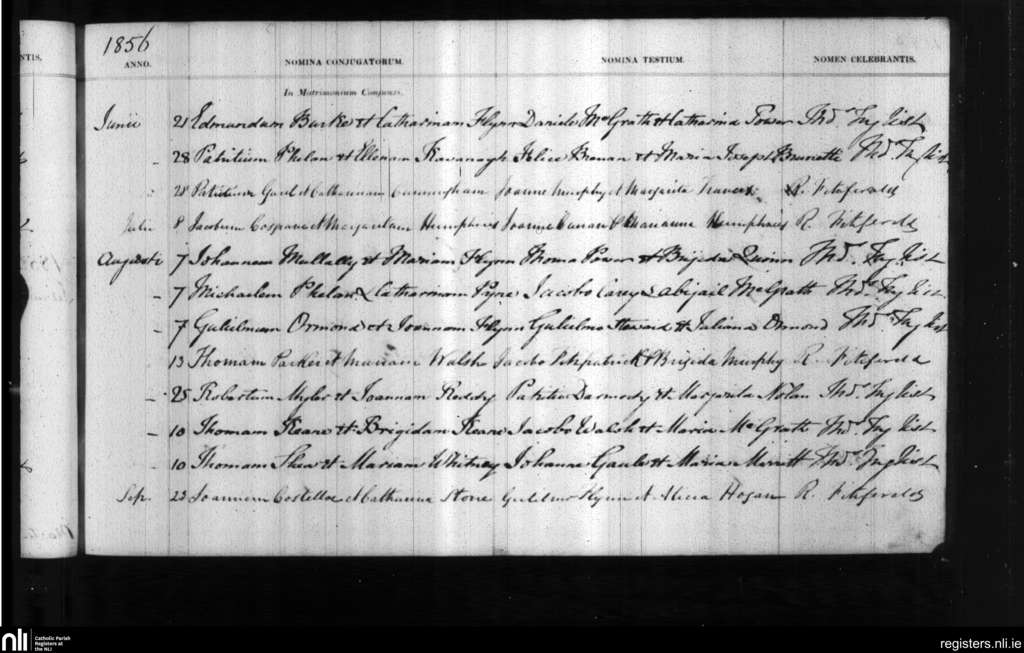 1856
NTIS.
ANNO. NOMINA CONJUGATORUM. NOMINA TESTIUM. NOMEN CELEBRANTIS.
In Matrimonium Conjunxi.
Junii 21 Edmundum Burke et Catharinam Flynn Daniele McGrath et Catharina Power Thos
28 Patritium Phelan et Ellenam Kavanagh Alice Brenan et Maria Thos
28 Patritium Gaul et Catharinam Cunningham Joanne Murphy et Margarita R. Fitzferald
Julii 8 Jacobum et Margaritam Humphries Joanne et Marianne Humphries R. Fitzferald
Augusti 7 Johannem Mullally et Mariam Flynn Thoma Power et Brigida Quinn Thos
7 Michaelem Phelan & Catharinam Jacobo Carey & Abigail McGrath Thos
7 Gulielmum Ormond et Joannam Flynn Gulielmo et Juliana Ormond Thos
13 Thomam Parker et Mariam Walsh Jacobo Fitzpatrick & Brigida Murphy R. Fitzferald
25 Robertum Myler et Joannam Reddy Patritio Darmody et Margarita Nolan Thos
10 Thomam Keane et Brigidam Keane Jacobo Walsh et Maria McGrath Thos
10 Thomam Shea et Mariam Whitney Johanne Gaule et Maria Thos
Sep. 23 Joannem Costelloe et Catharina Stone Gulielmo Flynn et Alicia Hogan R. Fitzferald
nli Catholic Parish
Registers at
the NLI
registers.nli.ie